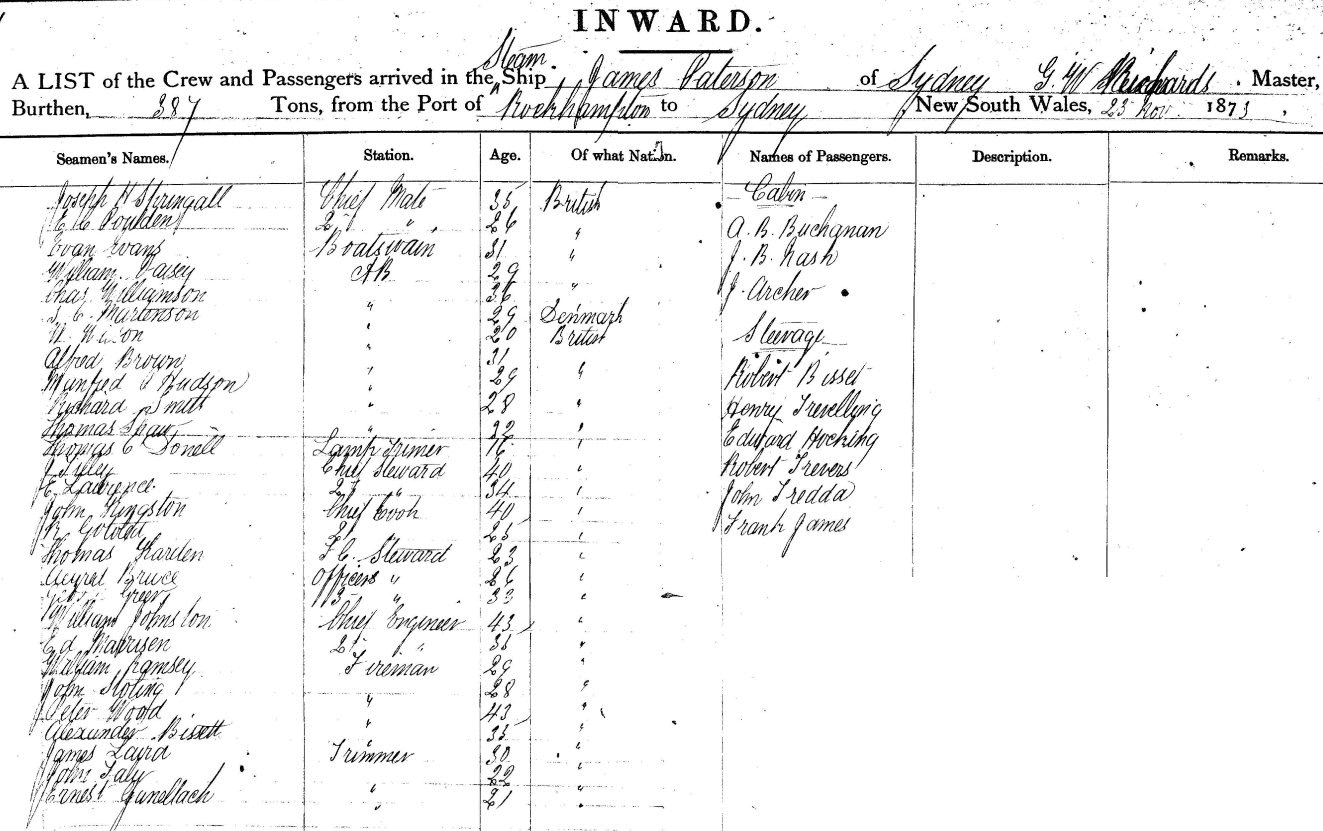 INWARD.
A LIST of the Crew and Passengers arrived in the Steam Ship James Paterson of Sydney G. W. Richards . Master,
Burthen, 387 Tons, from the Port of Rockhampton to Sydney New South Wales, 23 Nov 1873 ,
Seamen's Names. Station. Age. Of what Nation. Names of Passengers. Description. Remarks.
Joseph H Springall Chief Mate 35 British Cabin
E C Poulden 2d " 26 " A. B. Buchanan
Evan Evans Boatswain 31 " J. B. Nash
William AB 29
Chas Williamson " 36 " J. Archer
Martenson " 29 Denmark
" 20 British Steerage
Alfred Brown " 31
Manfred Hudson " 29 " Robert Bisset
Richard Smith " 28 " Henry Trevelling
Thomas " 32 " Edward Hocking
Thomas C Lamp Trimer 16 "
J Chief Steward 40 " Robert Trevers
E. Lawrence 2d " 34 " John Tredda
John Kingston Chief Cook 40 "
2d 25 " Frank James
Thomas F.C. Steward 23 "
Bruce Officers " 26 "
Green 33 "
William Johnston Chief Engineer 43 "
Ed Marrisen 2d " 35 "
William Ramsey Fireman 29 "
John " 28 "
Peter Wood " 43 "
Alexander Bissett 35 "
James Laird Trimmer 30 "
John 22 "
Ernest " 21 "